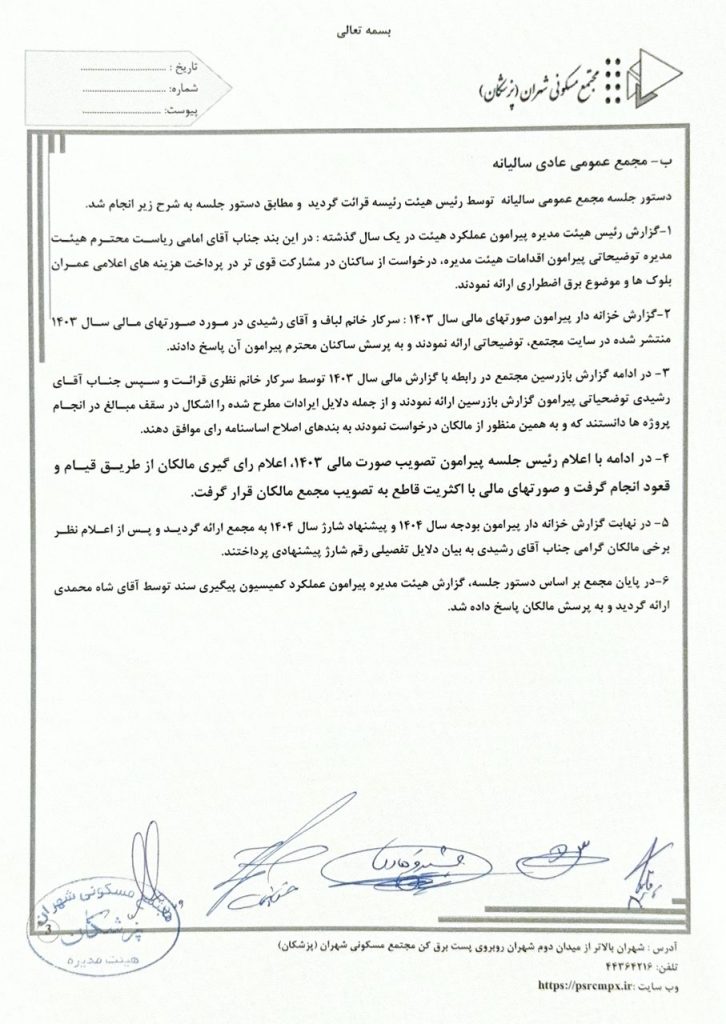 بسمه تعالی
مجتمع مسکونی شهران (پزشکان)
تاریخ : ................................
شماره: ................................
پیوست: ................................
ب- مجمع عمومی عادی سالیانه
دستور جلسه مجمع عمومی سالیانه توسط رئیس هیئت رئیسه قرائت گردید و مطابق دستور جلسه به شرح زیر انجام شد.
۱-گزارش رئیس هیئت مدیره پیرامون عملکرد هیئت در یک سال گذشته : در این بند جناب آقای امامی ریاست محترم هیئت
مدیره توضیحاتی پیرامون اقدامات هیئت مدیره، درخواست از ساکنان در مشارکت قوی تر در پرداخت هزینه های اعلامی عمران
بلوک ها و موضوع برق اضطراری ارائه نمودند.
۲-گزارش خزانه دار پیرامون صورتهای مالی سال ۱۴۰۳ : سرکار خانم لباف و آقای رشیدی در مورد صورتهای مالی سال ۱۴۰۳
منتشر شده در سایت مجتمع، توضیحاتی ارائه نمودند و به پرسش ساکنان محترم پیرامون آن پاسخ دادند.
۳- در ادامه گزارش بازرسین مجتمع در رابطه با گزارش مالی سال ۱۴۰۳ توسط سرکار خانم نظری قرائت و سپس جناب آقای
رشیدی توضحیاتی پیرامون گزارش بازرسین ارائه نمودند و از جمله دلایل ایرادات مطرح شده را اشکال در سقف مبالغ در انجام
پروژه ها دانستند که و به همین منظور از مالکان درخواست نمودند به بندهای اصلاح اساسنامه رای موافق دهند.
۴- در ادامه با اعلام رئیس جلسه پیرامون تصویب صورت مالی ۱۴۰۳، اعلام رای گیری مالکان از طریق قیام و
قعود انجام گرفت و صورتهای مالی با اکثریت قاطع به تصویب مجمع مالکان قرار گرفت.
۵- در نهایت گزارش خزانه دار پیرامون بودجه سال ۱۴۰۴ و پیشنهاد شارژ سال ۱۴۰۴ به مجمع ارائه گردید و پس از اعلام نظر
برخی مالکان گرامی جناب آقای رشیدی به بیان دلایل تفصیلی رقم شارژ پیشنهادی پرداختند.
۶-در پایان مجمع بر اساس دستور جلسه، گزارش هیئت مدیره پیرامون عملکرد کمیسیون پیگیری سند توسط آقای شاه محمدی
ارائه گردید و به پرسش مالکان پاسخ داده شد.
مجتمع مسکونی شهران
پزشکان
هیئت مدیره
3
آدرس : شهران بالاتر از میدان دوم شهران روبروی پست برق کن مجتمع مسکونی شهران (پزشکان)
تلفن: ۴۴۳۶۴۲۱۶
وب سایت :https://psrcmpx.ir